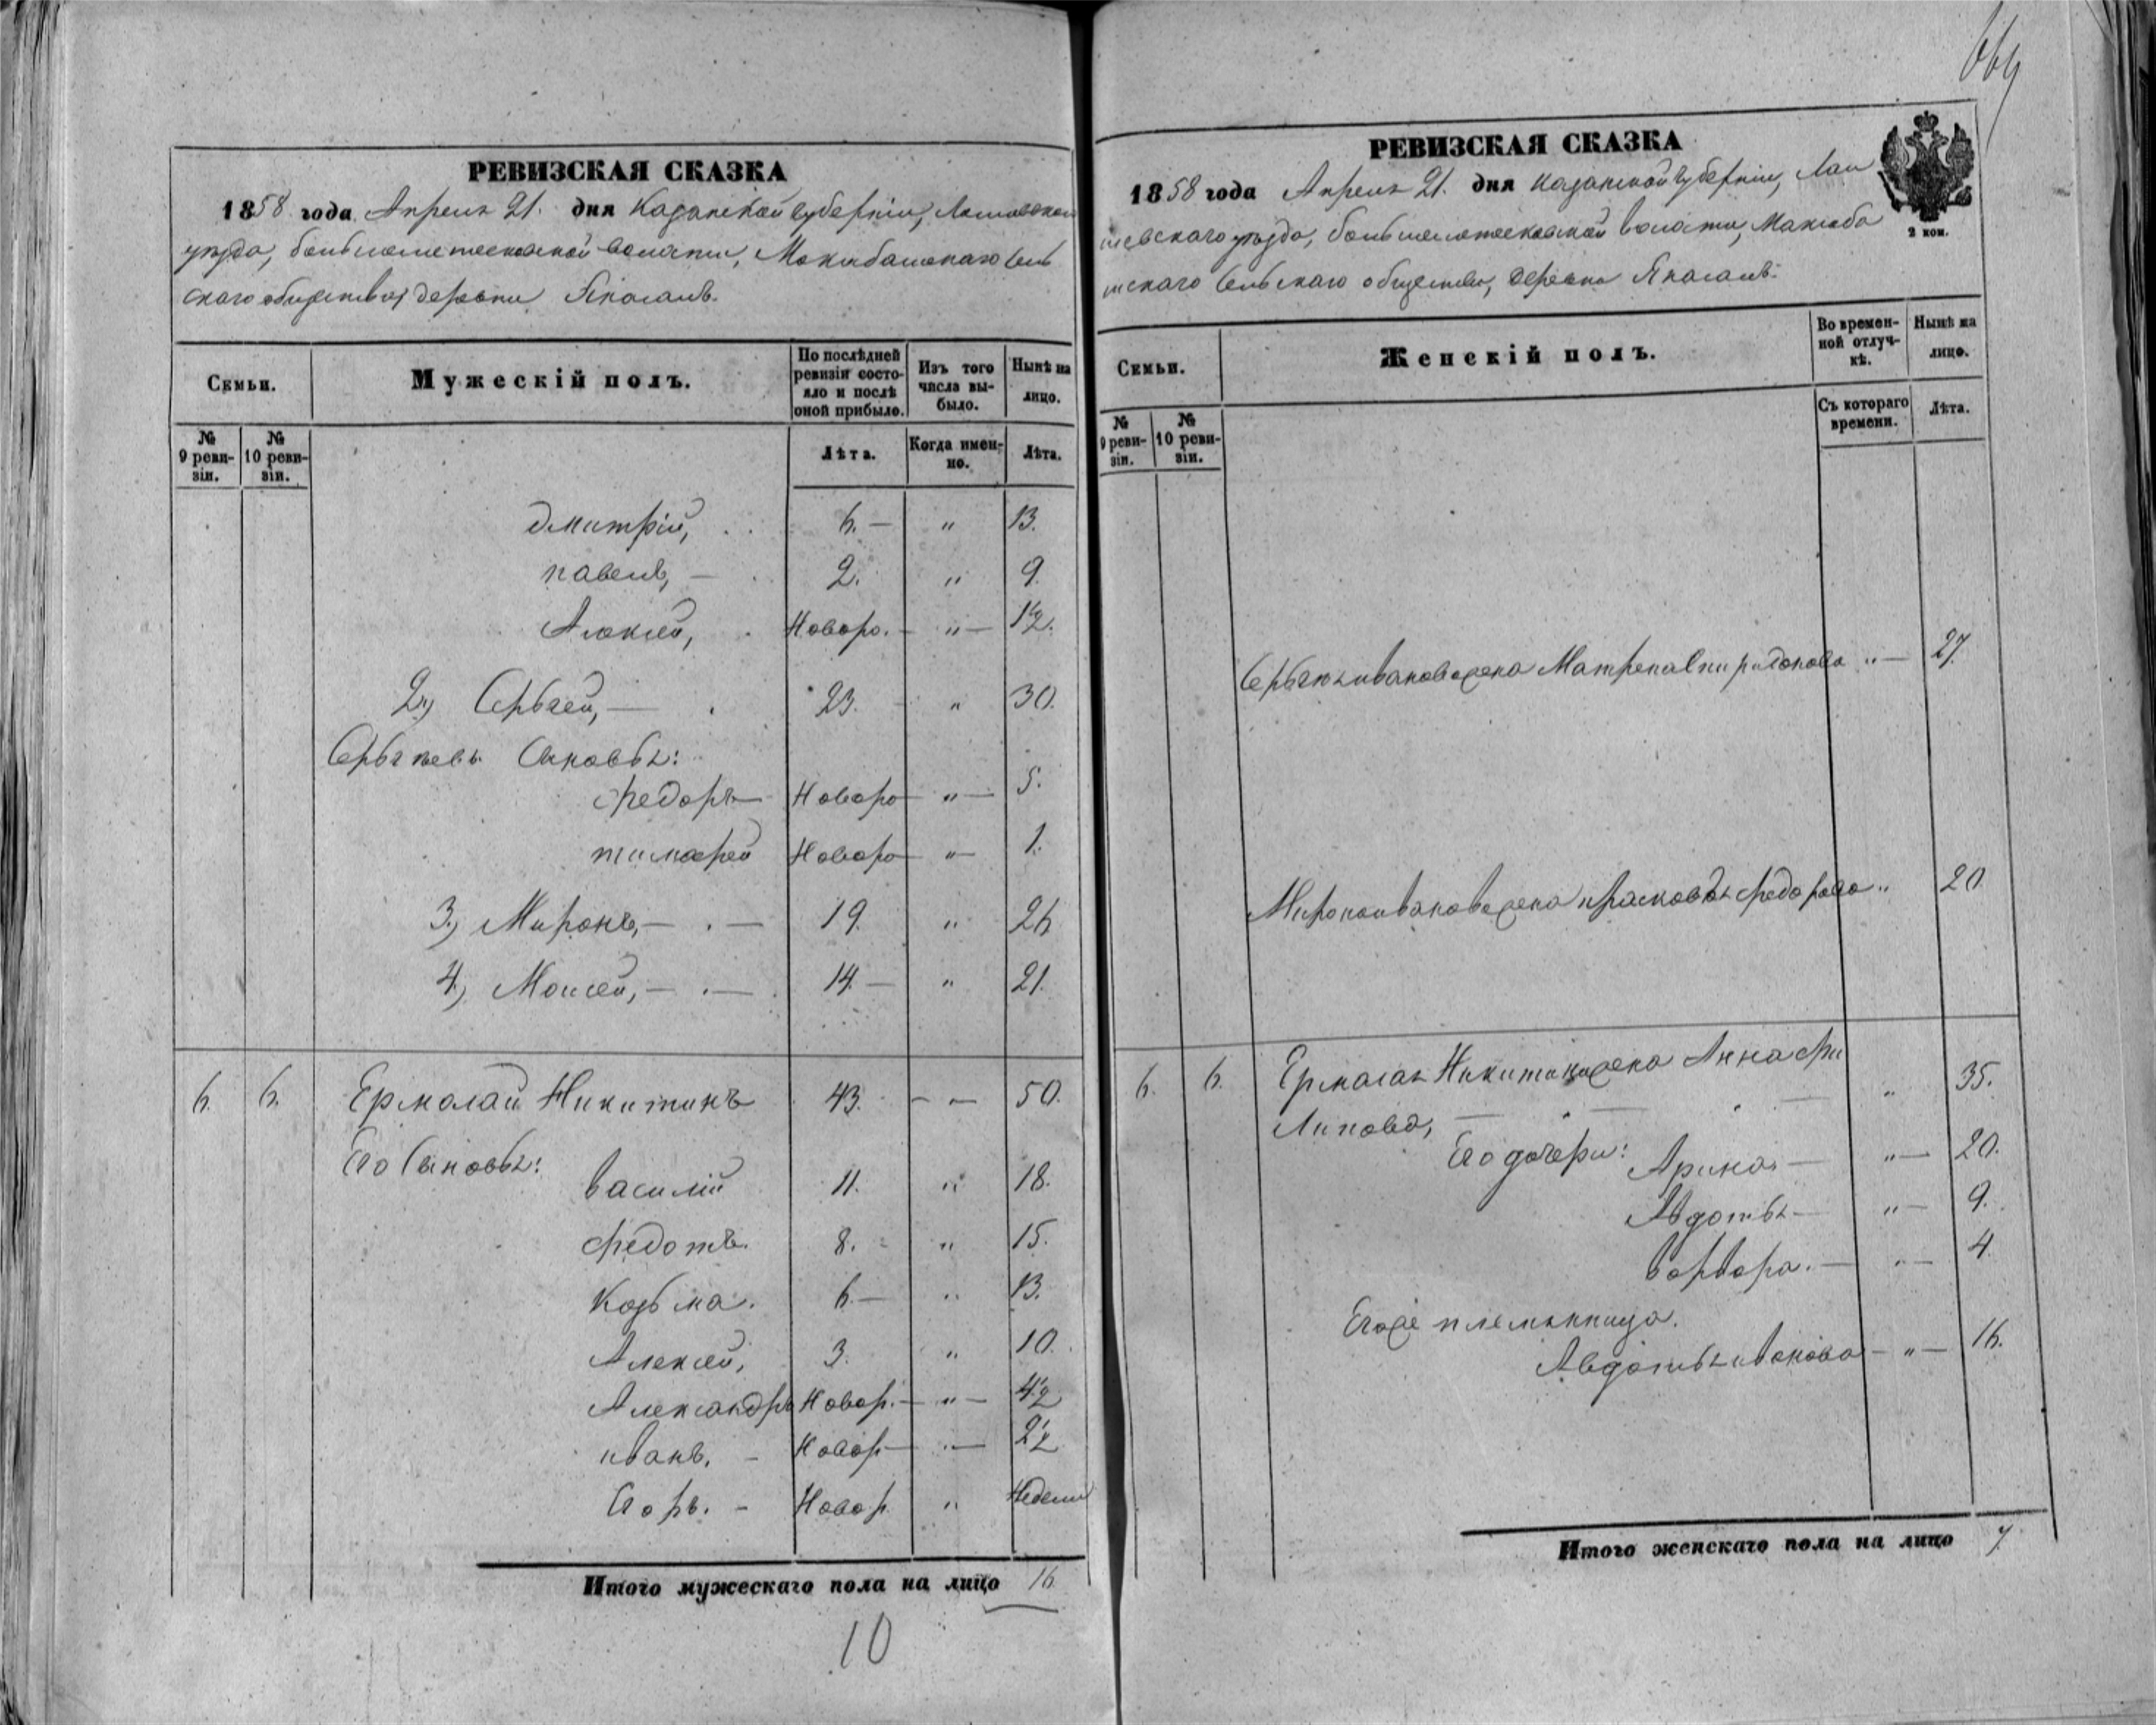 664
РЕВИЗСКАЯ СКАЗКА
1858 года Апреля 21. дня Казанской губерніи, Лаишевскаго
уѣзда, волости, сель
скаго общества, деревни
Семьи.
Мужескій полъ.
По послѣдней ревизіи состояло и послѣ оной прибыло.
Изъ того числа выбыло.
Нынѣ на лицо.
№ 9 ревизіи.
№ 10 ревизіи.
Лѣта.
Когда именно.
Лѣта.
Дмитрій, 6. — „ 13.
павелъ, — 2. „ 9.
Алексей, Новоро. — „ — 1½.
2.) Сергей, — 23. „ 30.
Сергѣевы Сыновья:
Федоръ — Новоро — „ — 5.
тимофей Новоро — „ — 1.
3.) Миронъ, — . — 19. „ 26
4.) Моисей, — . — 14. — „ 21.
6. 6. Ермолай Никитинъ 43. — — 50.
Его Сыновья:
василій 11. „ 18.
Федотъ. 8. „ 15.
Козьма. 6. — „ 13.
Алексей, 3. „ 10.
Александръ Новор. — „ — 4½
иванъ. — Новор — „ — 2½
Егоръ. — Новор. „ Недели
Итого мужескаго пола на лицо 16
10
РЕВИЗСКАЯ СКАЗКА
1858 года Апреля 21. дня Казанской губерніи, Лаи
шевскаго уѣзда, волости,
Сельскаго общества, деревни
2 коп.
Семьи.
Женскій полъ.
Во временной отлучкѣ.
Нынѣ на лицо.
№ 9 ревизіи.
№ 10 ревизіи.
Съ котораго времени.
Лѣта.
Сергея иванова жена Матрена Спиридонова „ — 27.
Мирона иванова жена прасковья Федорова „ 20
6. 6. Ермолая Никитина жена Анна Фи
липова, — „ — „ — „ 35.
Его дочери: Арина — „ — 20.
Авдотья — „ — 9.
Варвара. — „ — 4.
Его же племянница.
Авдотья иванова — „ — 16.
Итого женскаго пола на лицо 7.